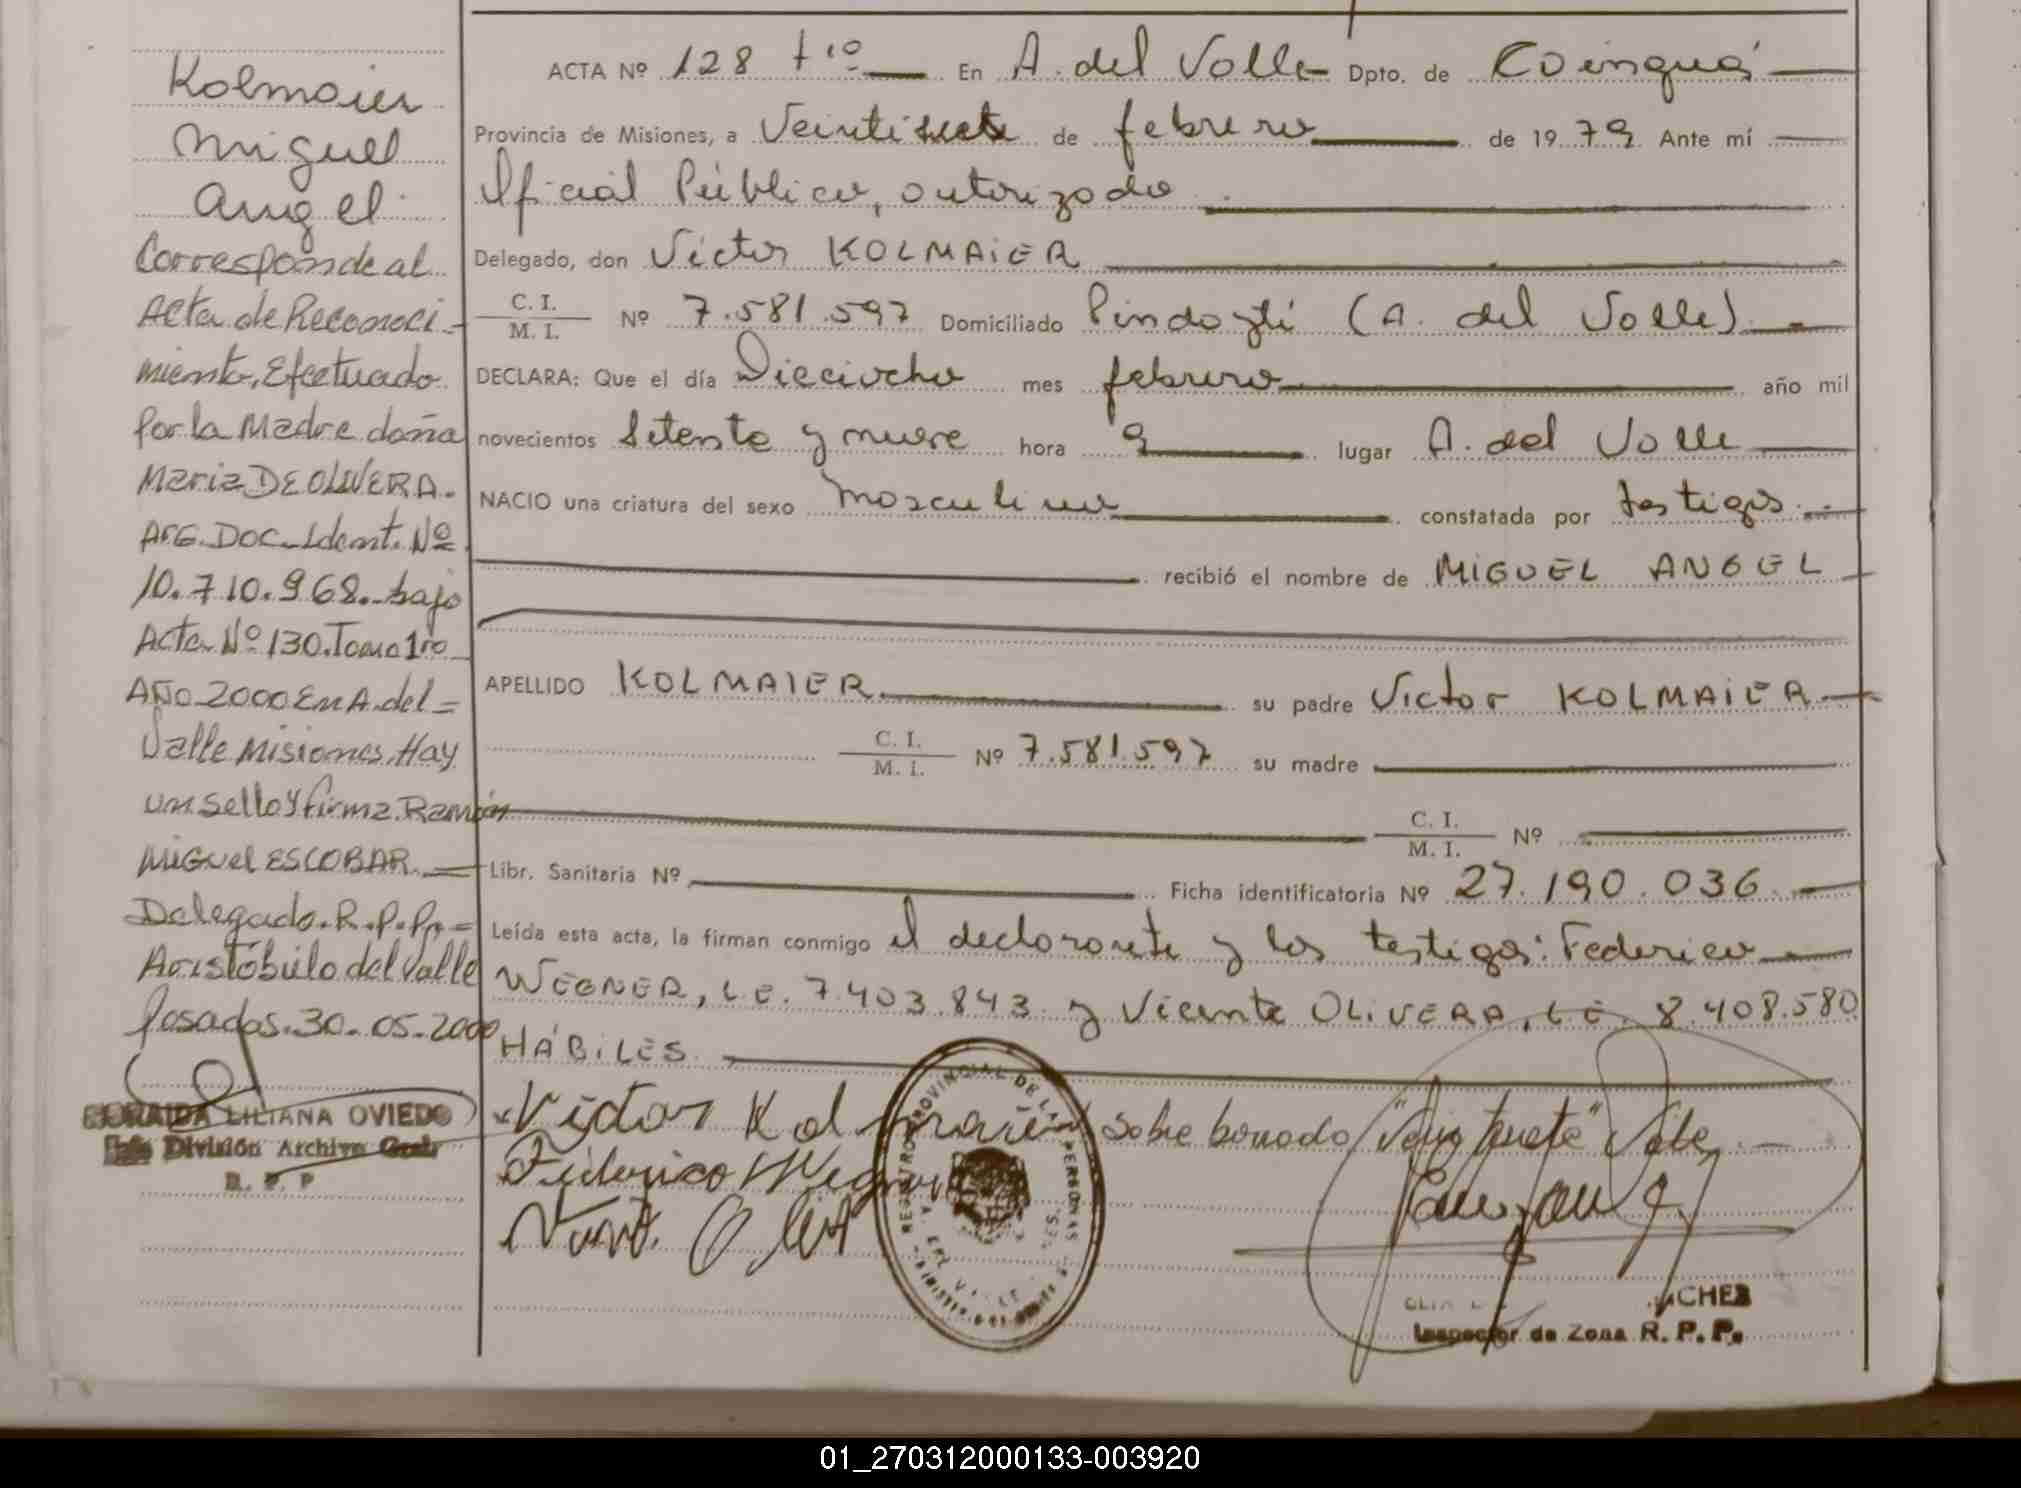 Kolmaier
Miguel
Angel
Corresponde al
Acta de Reconoci-
miento, Efectuado
Por la Madre doña
Maria DE OLIVERA.
Arg. Doc. Ident. Nº
10.710.968.-bajo
Acta Nº 130.Tomo 1ro
AÑO 2000 En A. del =
Valle Misiones. Hay
un Sello y firma. Ramón
Miguel ESCOBAR.
Delegado. R. P. Ps =
Aristóbulo del Valle
Posadas. 30-05-2000
LILIANA OVIEDO
División Archivo Gral.
R. P. P
ACTA Nº 128 tº En A. del Valle Dpto. de Cainguá
Provincia de Misiones, a Veintisiete de febrero de 1979 Ante mí
Oficial Público, autorizado
Delegado, don Víctor KOLMAIER
C. I. / M. I. Nº 7.581.597 Domiciliado Pindaytí (A. del Valle)
DECLARA: Que el día Dieciocho mes febrero año mil
novecientos Setenta y nueve hora 9 lugar A. del Valle
NACIO una criatura del sexo masculino constatada por testigos
recibió el nombre de MIGUEL ANGEL
APELLIDO KOLMAIER su padre Victor KOLMAIER
C. I. / M. I. Nº 7.581.597 su madre
C. I. / M. I. Nº
Libr. Sanitaria Nº Ficha identificatoria Nº 27.190.036
Leída esta acta, la firman conmigo el declarante y los testigos: Federico
WEGNER, L.E. 7.403.843 y Vicente OLIVERA, L.E. 8.408.580
HÁBILES.
Victor Kolmaier Sobre borrado "Veintisiete" Vale.
Federico Wegner
REGISTRO PROVINCIAL DE LAS PERSONAS
Inspector de Zona R. P. P.
01_270312000133-003920